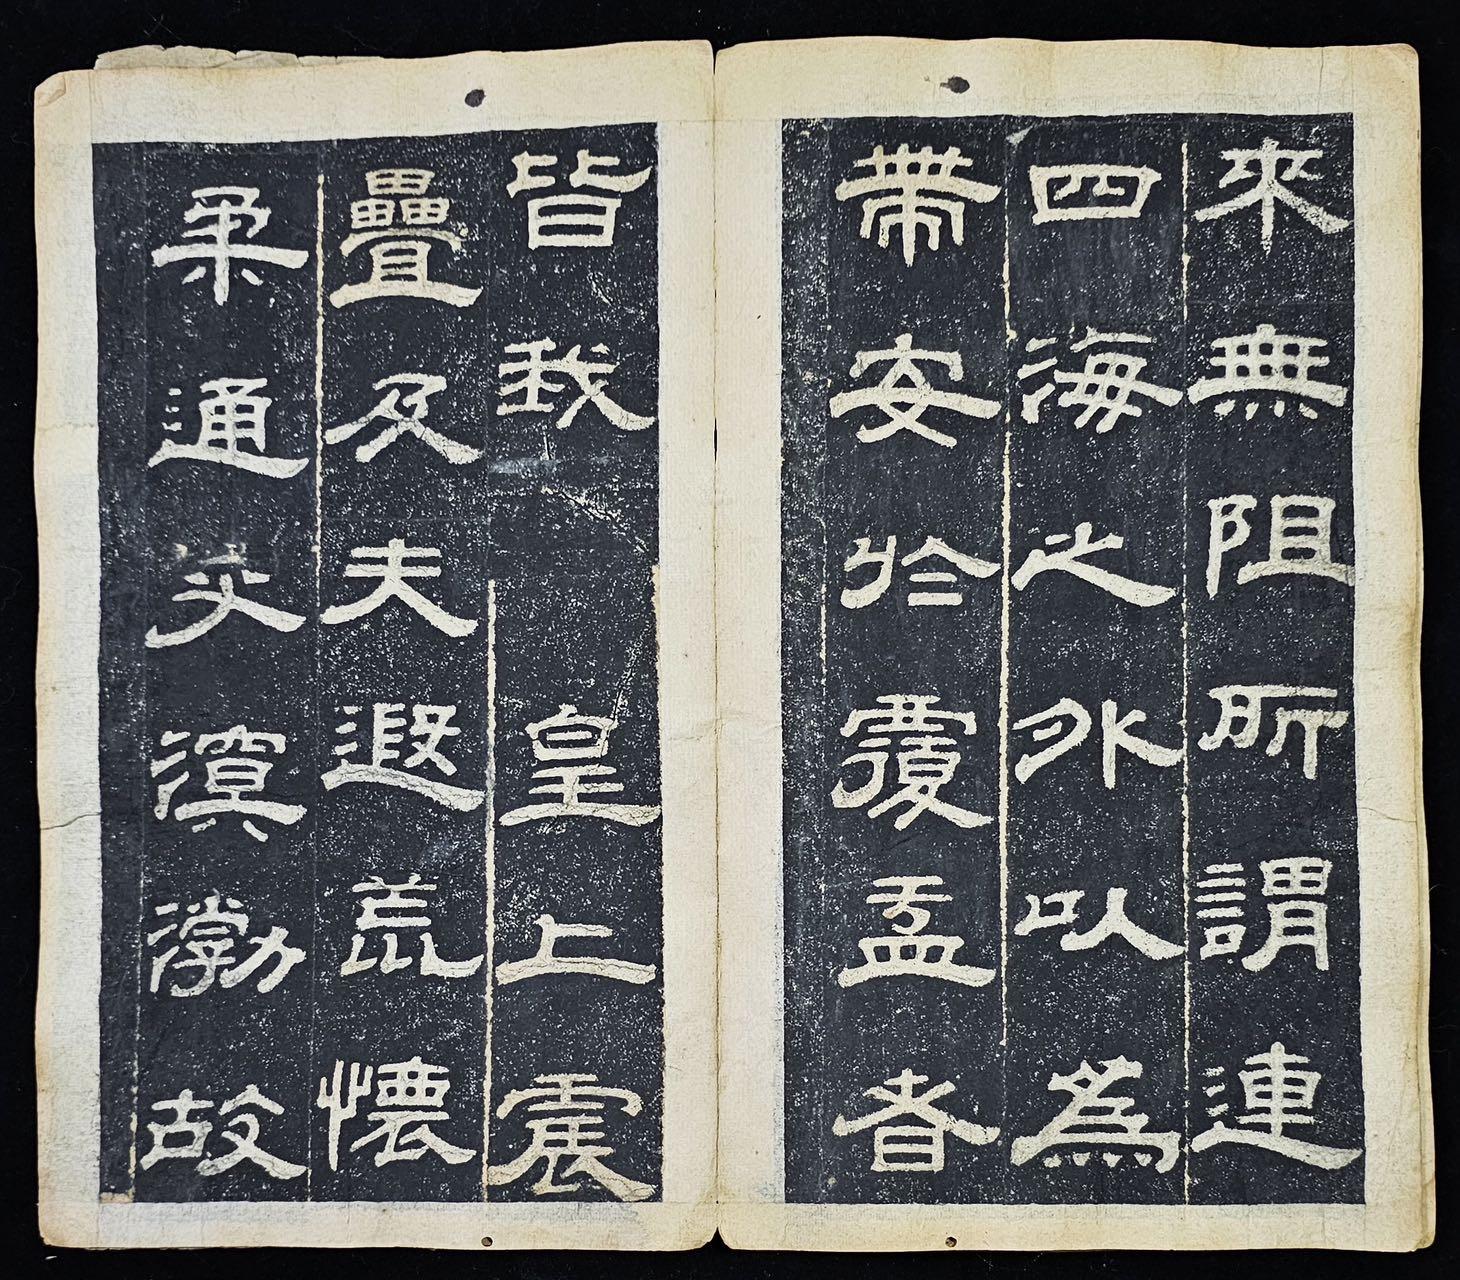 來無阻所謂連
四海之外以爲
帶安於覆盂者
皆我 皇上震
疊及夫遐荒懷
柔通溟渤故